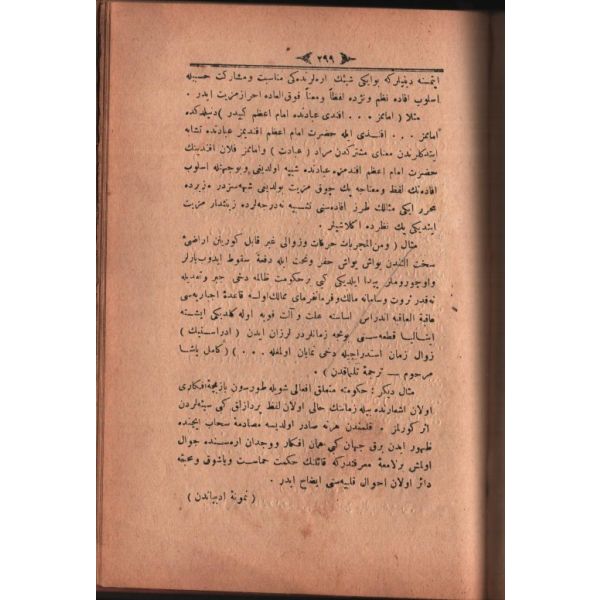 ۲۹۹
ایتمسنه دینیلرکه بو ایکی شیئك ارەلرندەکی مناسبت ومشارکت حسبیله
اسلوب افاده نظم ونثرده لفظاً ومعناً فوق العاده احراز مزیت ایدر .
مثلا ( امامز . . . افندی عبادتده امام اعظم کبیدر ) دنیلدکده
امامز . . . افندی ایله حضرت امام اعظم افندیمز عبادتده تشابه
ایتدکلرندن معنای مشترکدن مراد ( عبادت ) وامامز فلان افندینك
حضرت امام اعظم افندمزه عبادتده شبیه اولدیغی وبوجهتله اسلوب
افادەنك لفظ ومعناجه پك چوق مزیت بولدیغی شبهەسزدر
محرر ایکی مثالك طرز افادەسنی تشبیه نەدرجەلرده مزیت
ایتدیکی پك نظرده اکلاشیلر .
مثال ( ومن المجربات حرکات وزوالی غیر قابل کورینن اراضیٔ
سخت التندن یواش یواش حفر ونحت ایله دفعة سقوط ایدوب یارلر
واوچوروملر پیدا ایلدیکی کبی بر حکومت ظالمه دخی جبر
نەقدر ثروت وسامانه مالك وفرمانفرمای ممالك اولسه قاعدۀ اجباریەسی
عاقبة العاقبه اندراس اساسنه علت وآلت قویه اولەکلدیکی ایشته
ایتالیا قطعەسی بونجه زمانلردر لرزان ایدن ( ادراستیك )
زوال زمان استدراجیله دخی نمایان اولمغله . . . ) ( کامل پاشا
مرحوم — ترجمۀ تلماقدن )
مثال دیکر : حکومته متعلق افعالی شویله طورسون بازیچۀ افکاری
اولان اشعارنده بیله زماننك حالی اولان لفظ پردازلق کبی سیئەلردن
اثر کورلمز . قلمندن هرنه صادر اولدیسه مصادمۀ سحاب ایچنده
ظهور ایدن برق جهان کبی همان افکار ووجدان ارەسنده جوال
اولمش بر لامعۀ معرفتدرکه قائلنك حکمت حماست ویاشوق ومحبته
دائر اولان احوال قلبیەسنی ایضاح ایدر .
( نمونۀ ادبیاتدن )